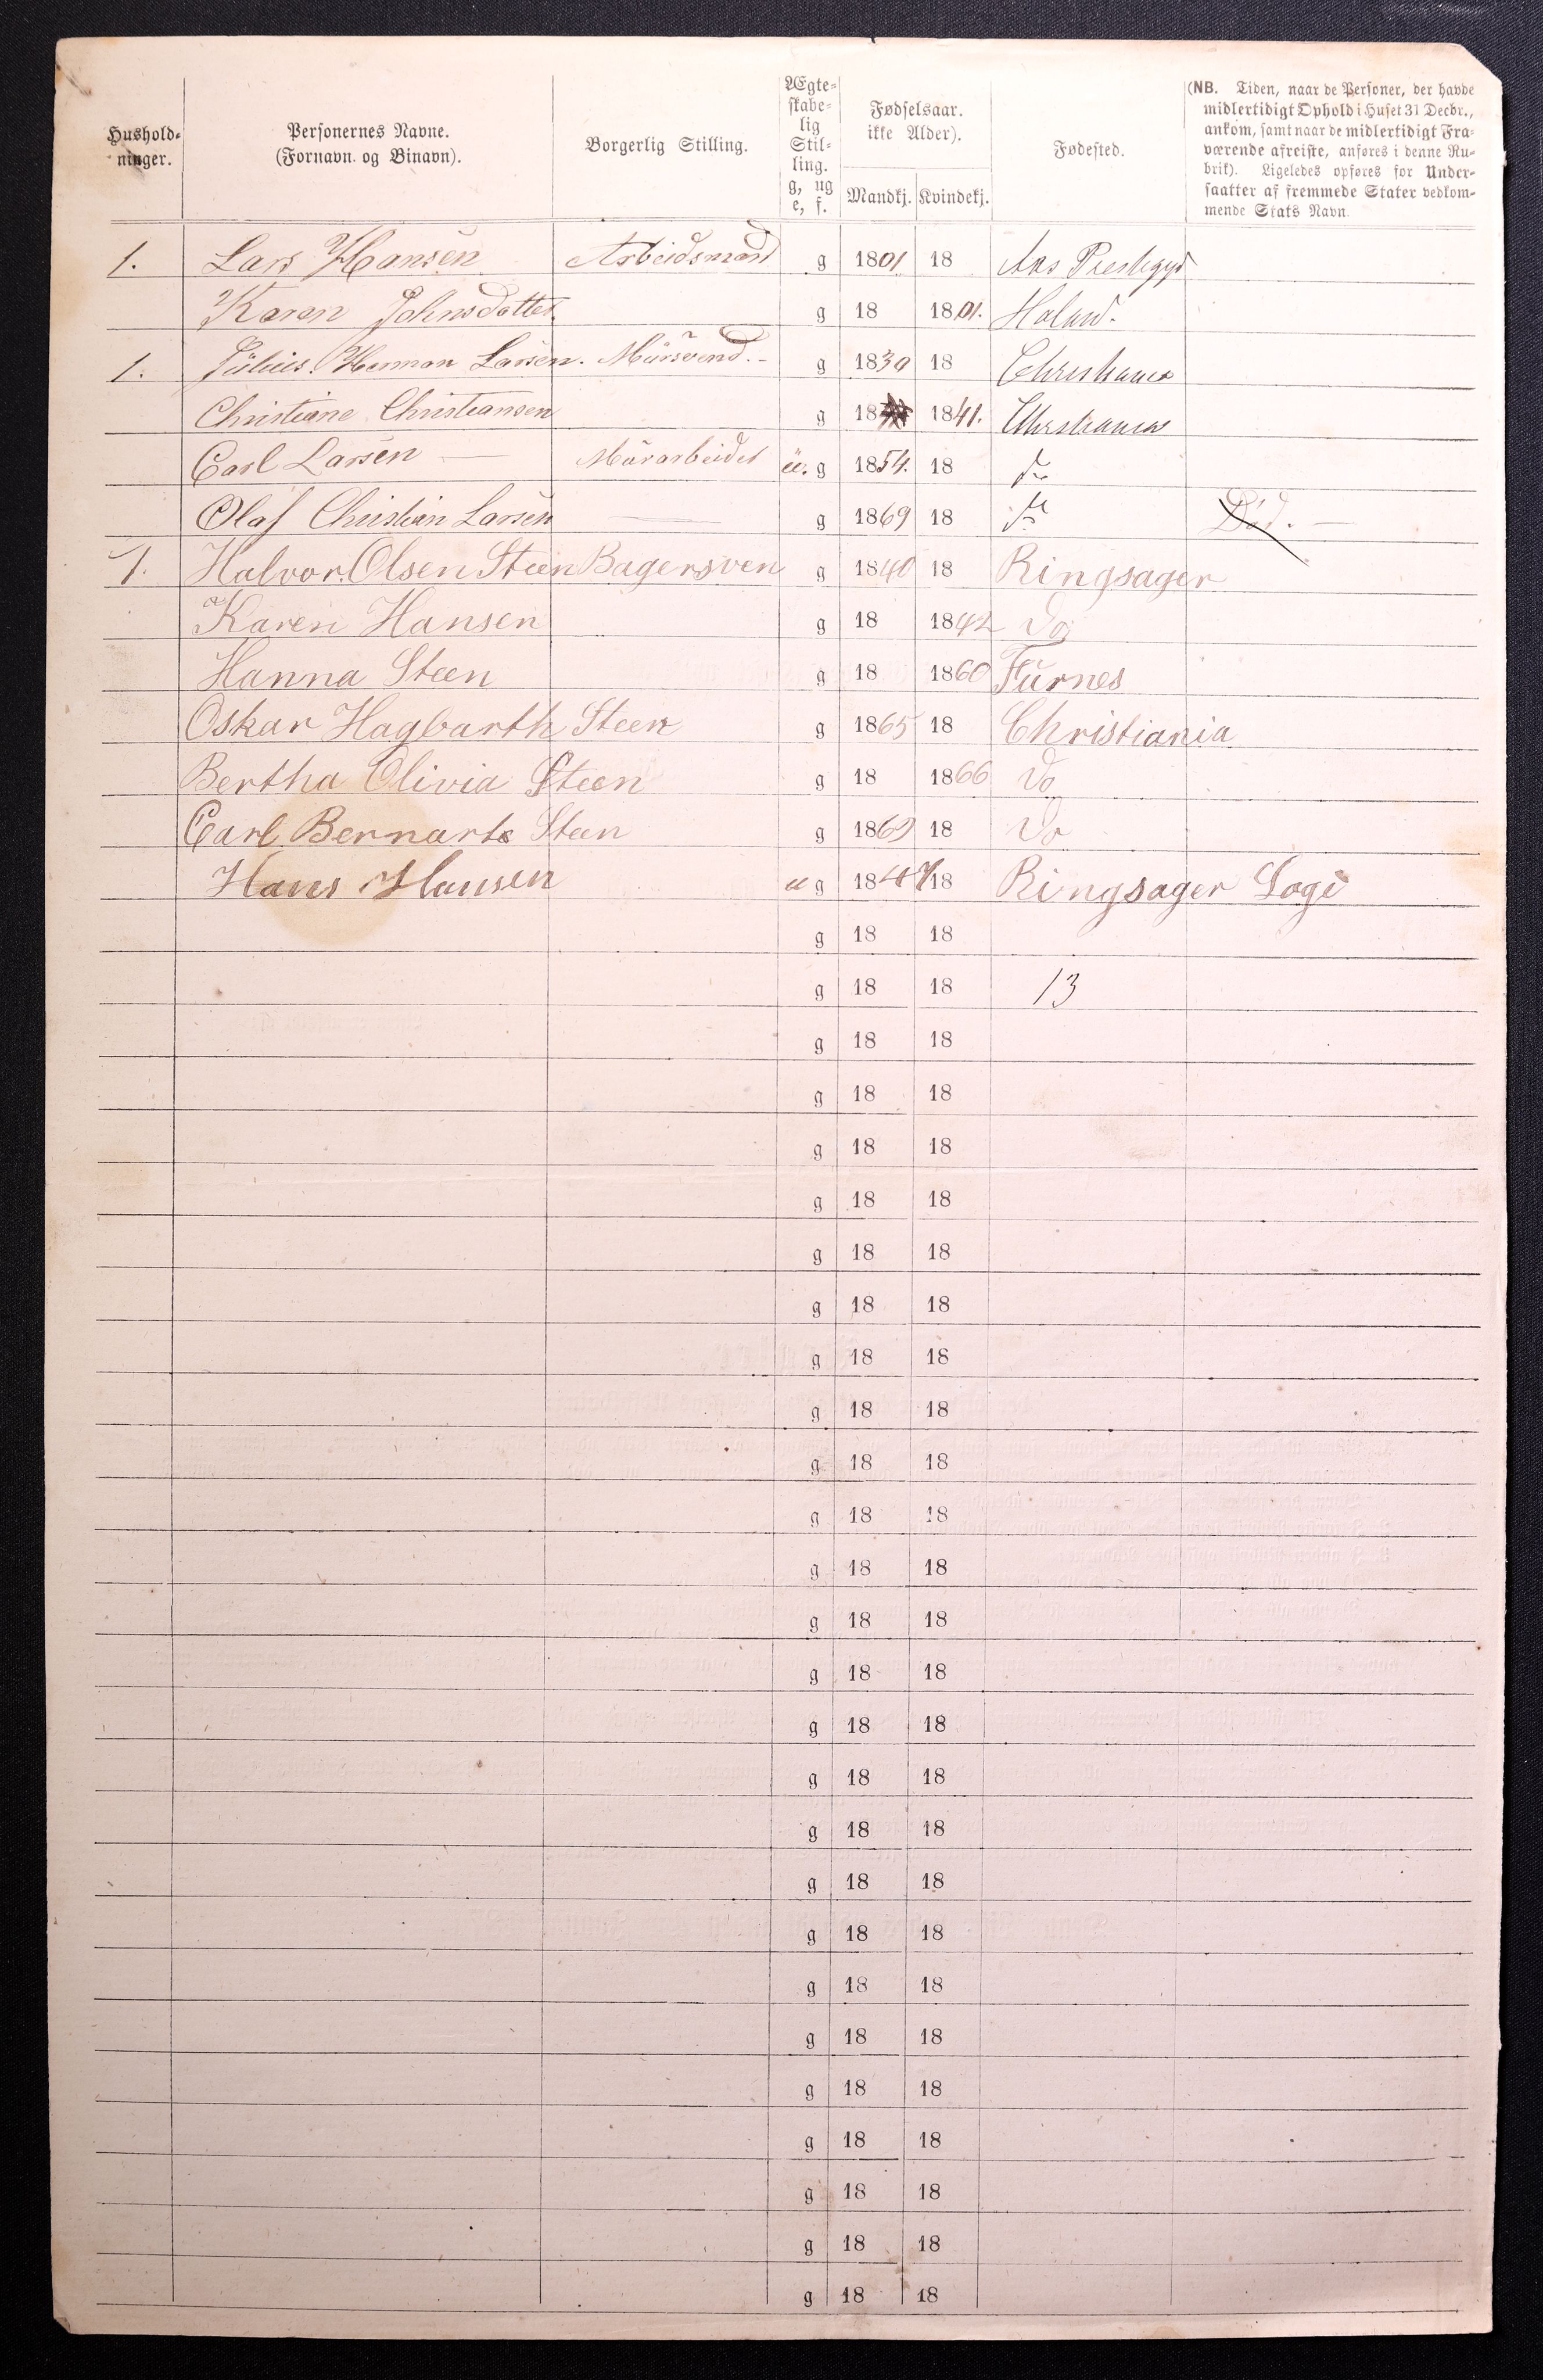 Hushold-
ninger.
Personernes Navne.
(Fornavn og Binavn).
Borgerlig Stilling.
Ægte-
skabe-
lig
Stil-
ling.
g, ug
e, f.
Fødselsaar.
ikke Alder).
Mandkj. Kvindekj.
Fødested.
(NB. Tiden, naar de Personer, der havde
midlertidigt Ophold i Huset 31 Decbr.,
ankom, samt naar de midlertidigt Fra-
værende afreiste, anføres i denne Ru-
brik). Ligeledes opføres for Under-
saatter af fremmede Stater vedkom-
mende Stats Navn.
1. Lars Hansen Arbeidsmand g 1801 18 Aas Prestegjd
Karen Johnsdatter g 18 1801. Holand.
1. Julius Herman Larsen. Mursvend. g 1830 18 Christiania
Christiane Christiansen g 18 1841. Christiania
Carl Larsen — Murarbeider u. g 1854. 18 do
Olaf Christian Larsen — g 1869 18 do Død. —
1. Halvor Olsen Steen Bagersven g 1840 18 Ringsager
Karen Hansen g 18 1842 do
Hanna Steen g 18 1860 Furnes
Oskar Hagbarth Steen g 1865 18 Christiania
Bertha Olivia Steen g 18 1866 do
Carl Bernart Steen g 1869 18 do
Hans Hansen u g 1847 18 Ringsager Logi
g 18 18
g 18 18 13
g 18 18
g 18 18
g 18 18
g 18 18
g 18 18
g 18 18
g 18 18
g 18 18
g 18 18
g 18 18
g 18 18
g 18 18
g 18 18
g 18 18
g 18 18
g 18 18
g 18 18
g 18 18
g 18 18
g 18 18
g 18 18
g 18 18
g 18 18
g 18 18
g 18 18